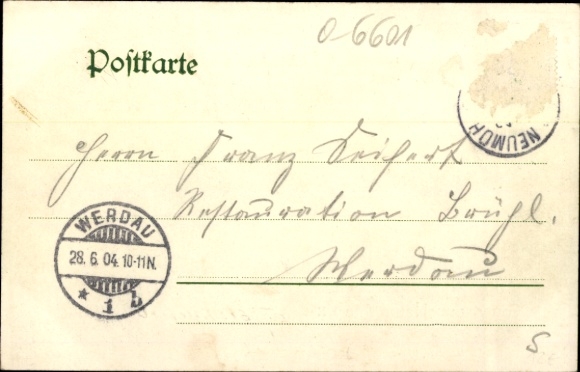 0-6601
Postkarte
NEUMÜH
Herrn Franz Seifert
Restauration Brühl.
Werdau
WERDAU
28. 6. 04. 10-11 N.
* 1 b
S